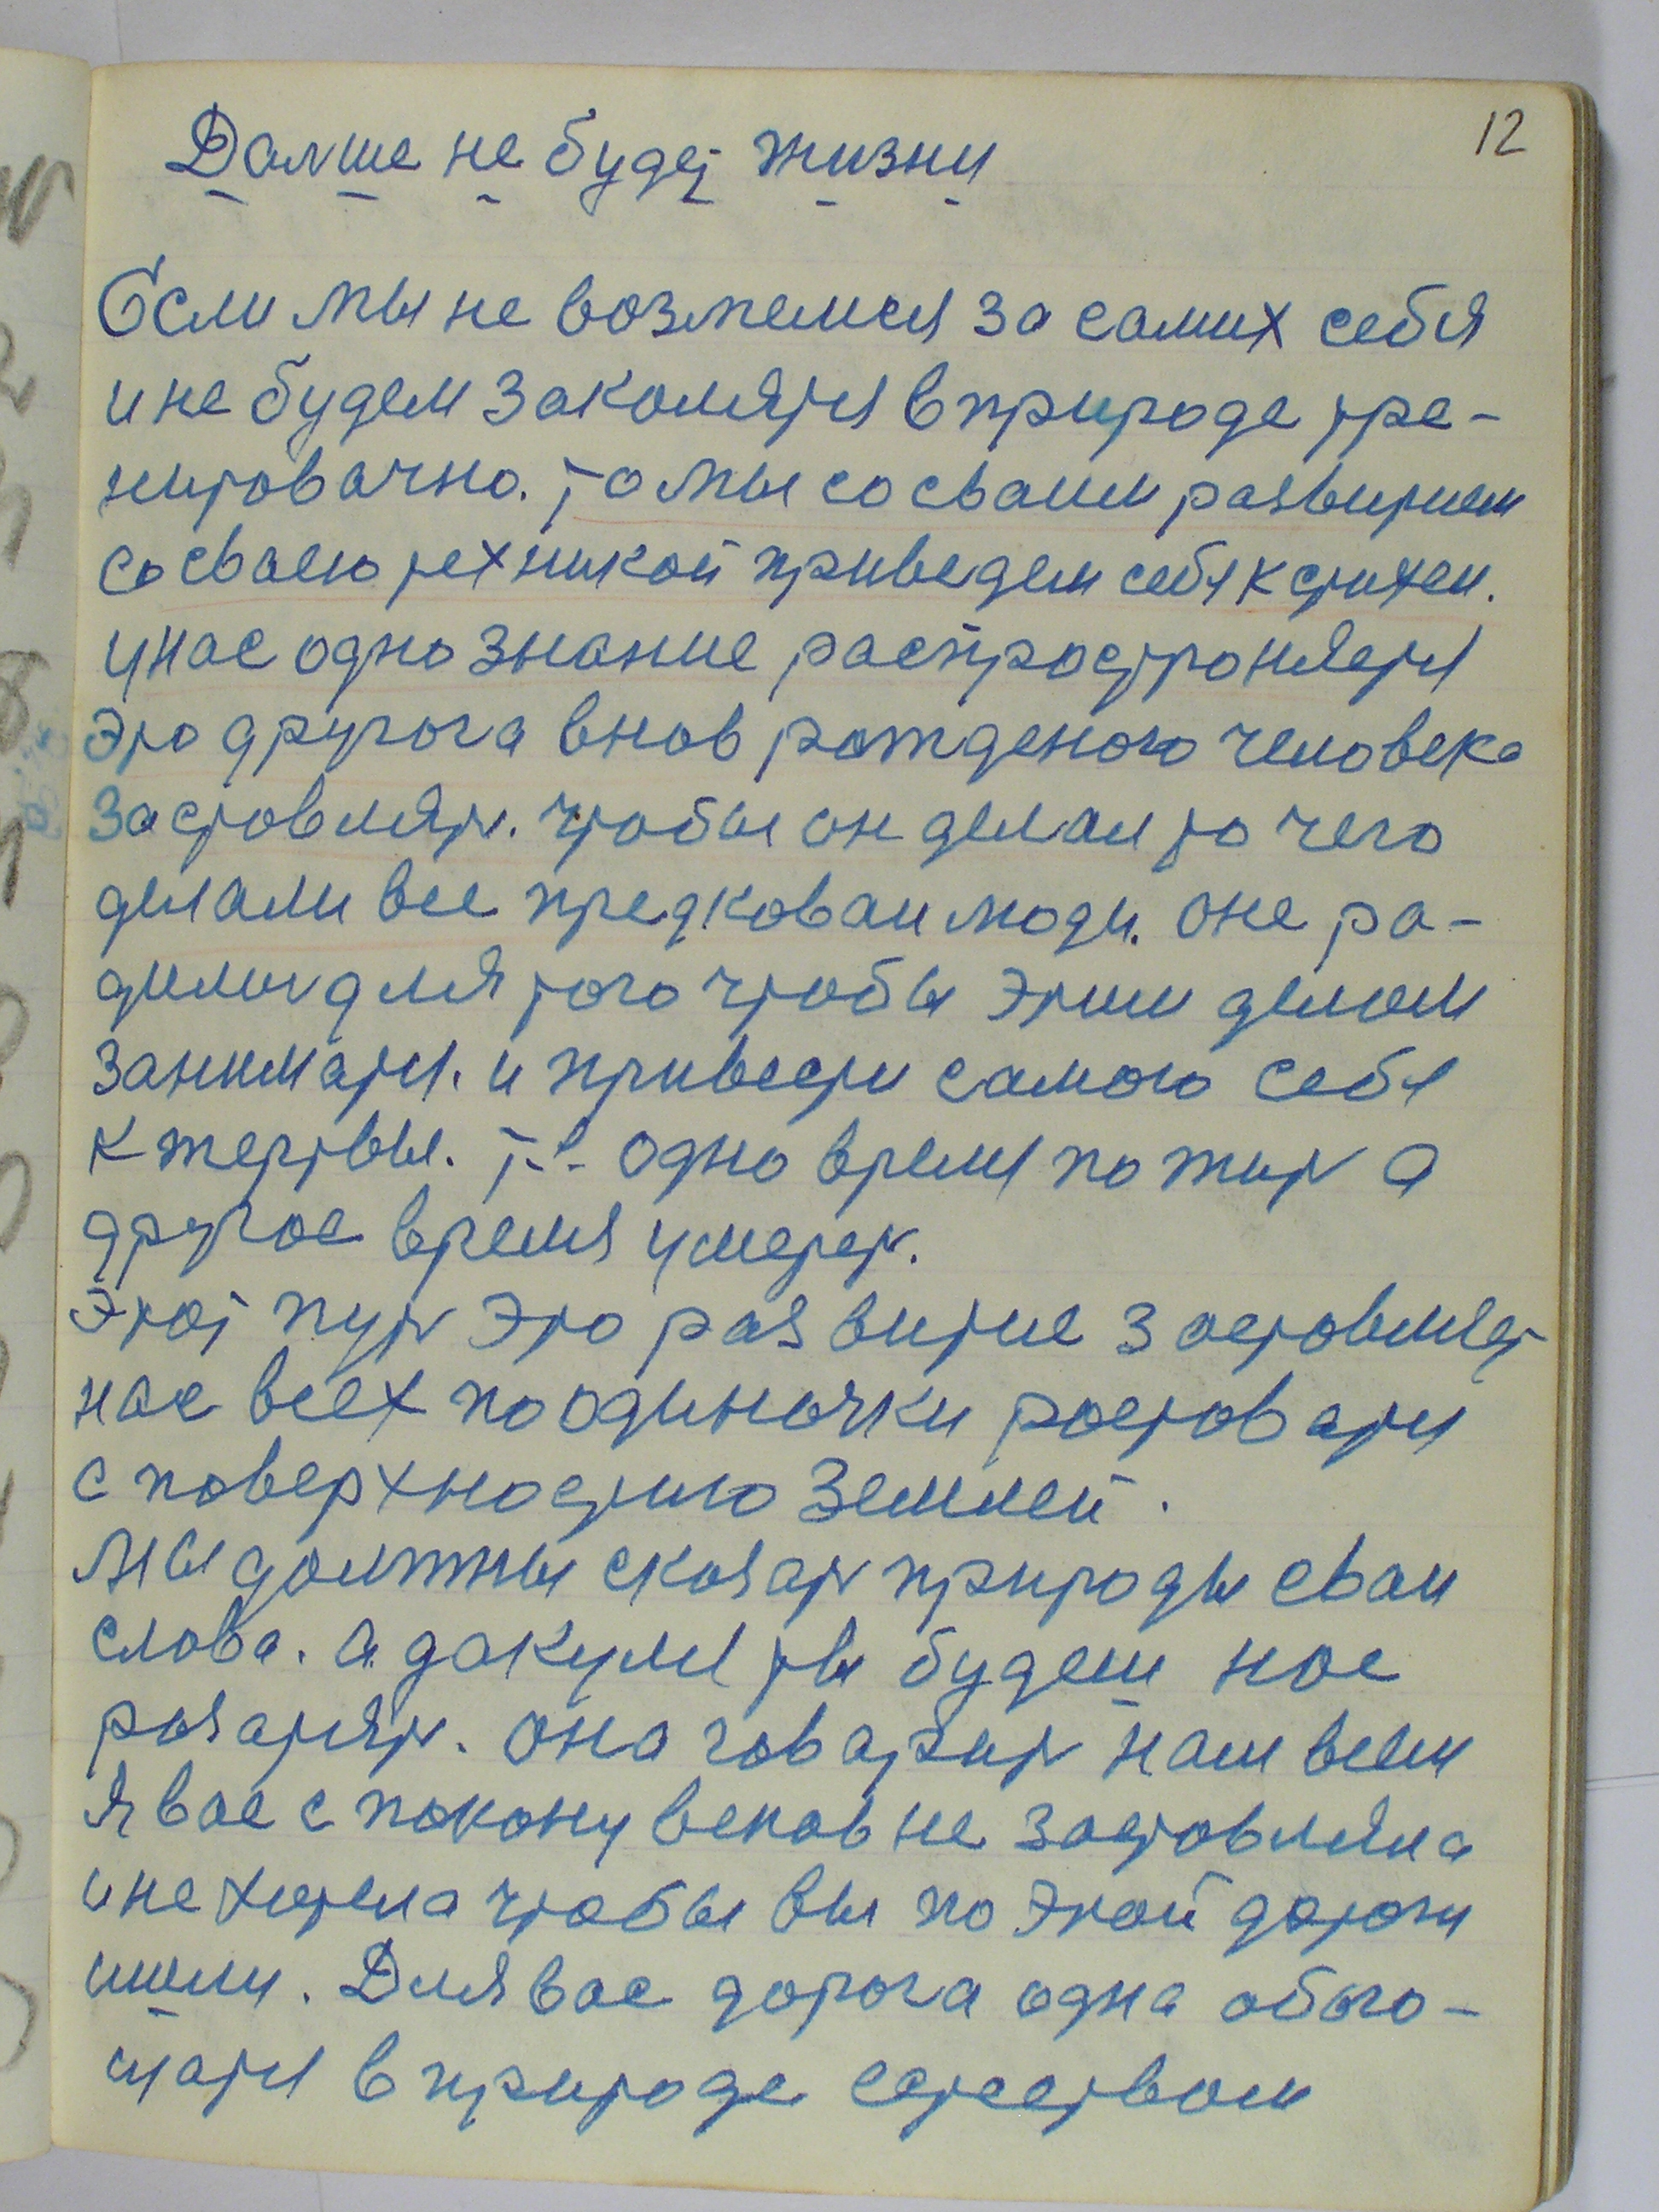 12
Далше не будет жизни
Если мы не возмемся за самих себя
и не будем закалятся в природе тре-
нировачно. то мы со сваим развитием
со сваею техникой приведем себя к стихеи.
у нас одно знание распространяется
Это другога внов рожденого человека
заставлят. чтобы он делал то чего
делали все предковаи люди. оне ра-
дилис для того чтобы этим делом
заниматся. и привести самого себя
к жертвы. т.е. одно время пожит а
другое время умерет.
Этот пут это развитие заставляет
нас всех по одиночки растоватся
с поверхностию Землей.
Мы должны сказат природы сваи
слова. а дакуля ты будеш нас
разарят. она говарит нам всем
Я вас с покону веков не заставляла
и не хотела чтобы вы по этой дороги
шоли. Для вас дорога одна обога-
щатся в природе естеством